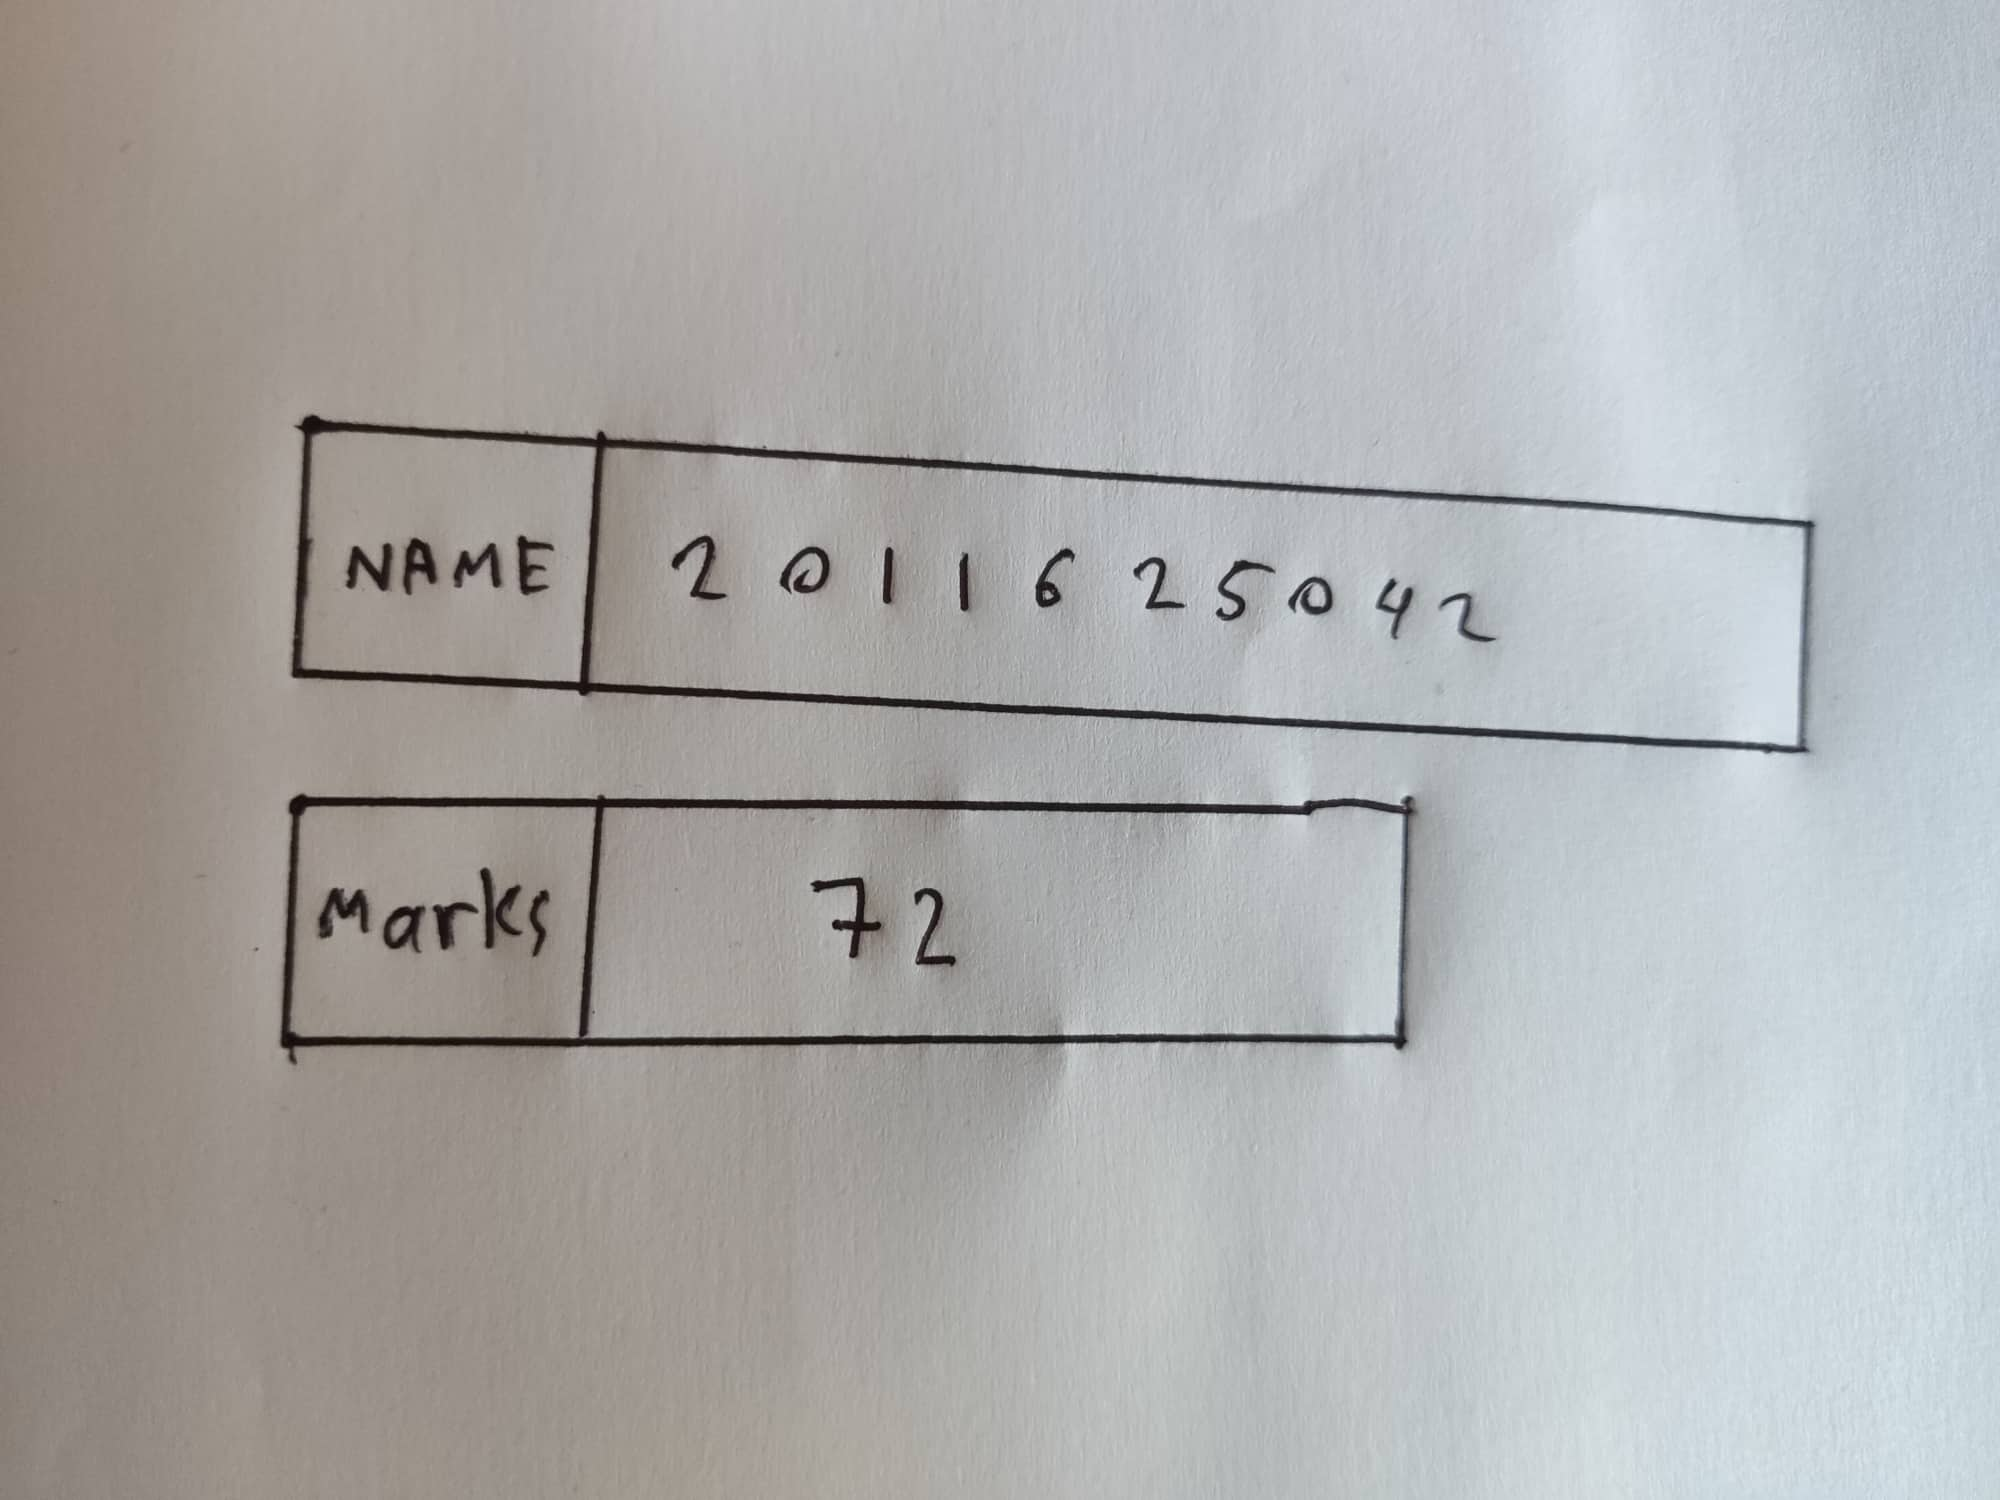 NAME 2 0 1 1 6 2 5 0 4 2
Marks 72